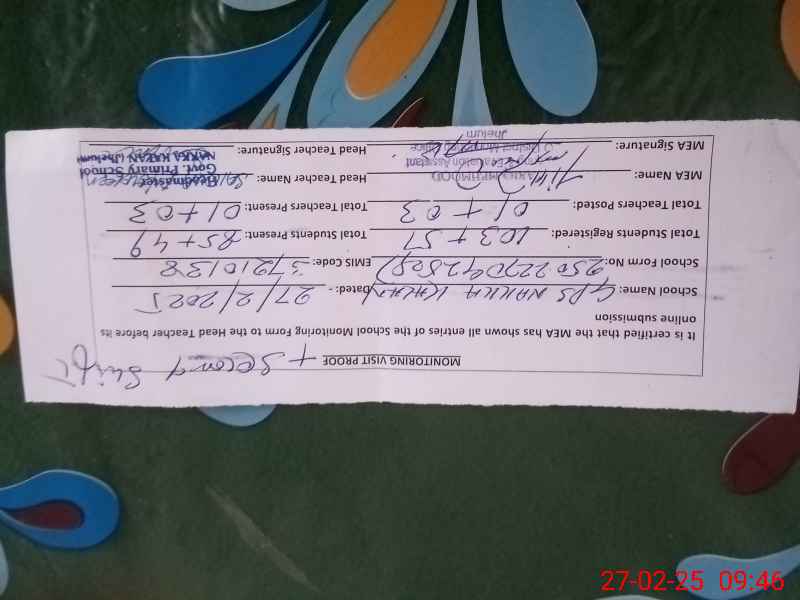 MONITORING VISIT PROOF + Second Shift
It is certified that the MEA has shown all entries of the School Monitoring Form to the Head Teacher before its
online submission
School Name: GPS NAKKA KHURD Dated: - 27/2/2025
School Form No: EMIS Code: 37210138
Total Students Registered: 103 + 57 Total Students Present: 85 + 49
Total Teachers Posted: 01 + 03 Total Teachers Present: 01 + 03
MEA Name: Head Teacher Name:
MEA Signature: Head Teacher Signature:
Evaluation Assistant
Jhelum
Headmaster
Govt. Primary School
Jhelum
27-02-25 09:46